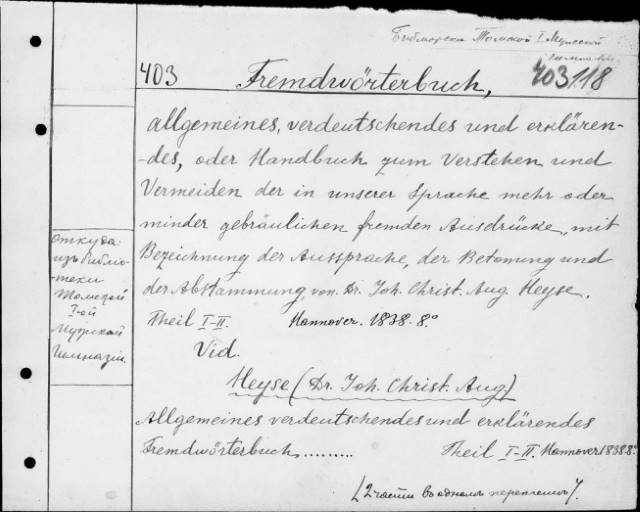 Библиотека Томской I Мужской
Гимназии
403
Fremdwörterbuch,
403 118
allgemeines, verdeutschendes und erklären-
-des, oder Handbuch zum Verstehen und
Vermeiden der in unserer Sprache mehr oder
minder gebräulichen fremden Ausdrücke, mit
Bezeichnung der Aussprache, der Betonung und
der Abstammung, von Dr. Joh. Christ. Aug. Heyse.
Theil I-II. Hannover. 1838. 8.°
Vid.
Heyse (Dr. Joh. Christ. Aug.)
Allgemeines verdeutschendes und erklärendes
Fremdwörterbuch......... Theil I-II. Hannover 1838. 8.°
[2 части в одном переплете].
откуда:
изъ библио-
-теки
Томской
I-ой
Мужской
Гимназіи.